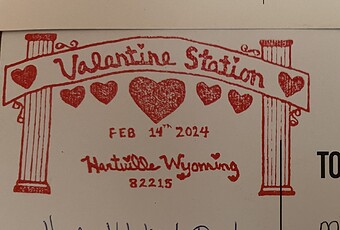 Valentine Station
FEB 14th 2024
TO
Hartville Wyoming
82215